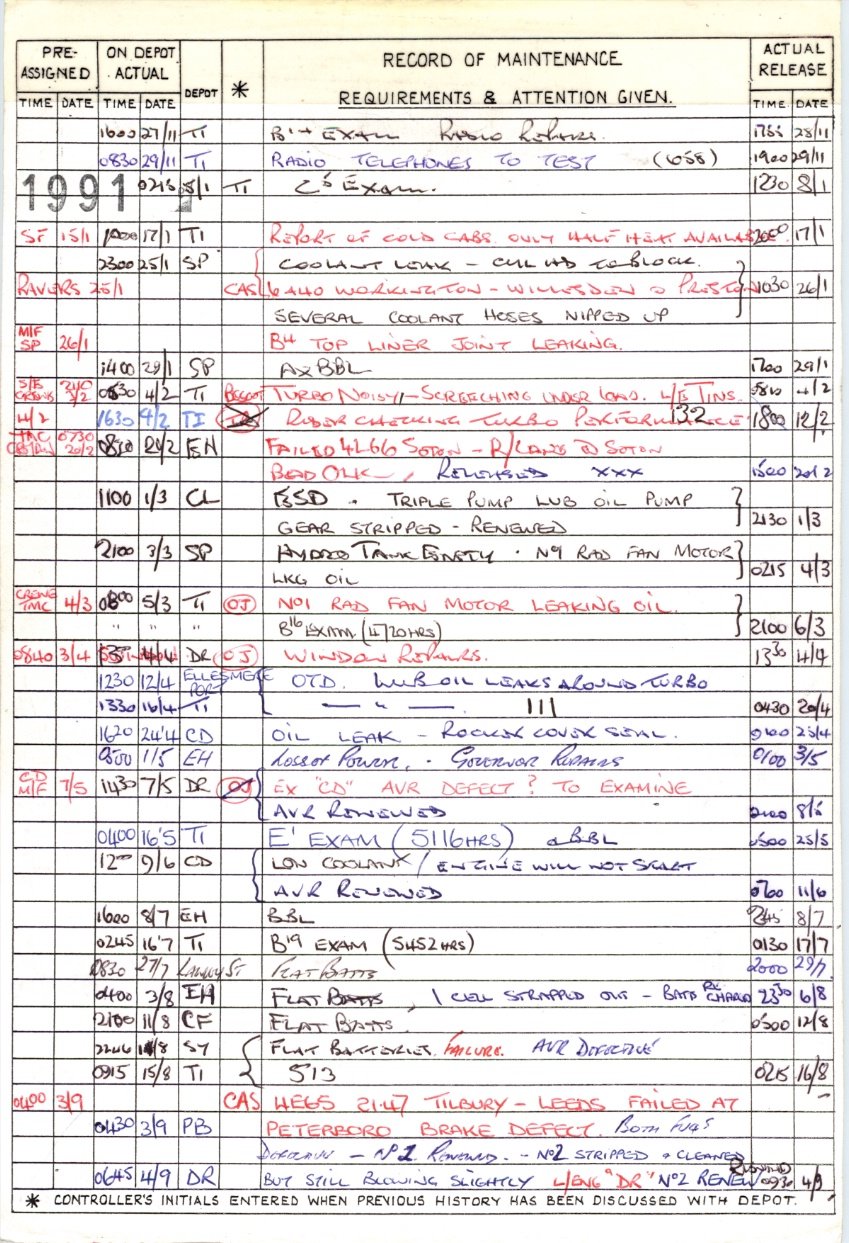 PRE-ASSIGNED ON DEPOT ACTUAL DEPOT * RECORD OF MAINTENANCE REQUIREMENTS & ATTENTION GIVEN. ACTUAL RELEASE
TIME DATE TIME DATE TIME DATE
1600 27/11 TI EXAM RADIO REPAIRS. 28/11
0830 29/11 TI RADIO TELEPHONES TO TEST (658) 1900 29/11
1991 0215 8/1 TI EXAM. 1230 8/1
SF 15/1 17/1 TI REPORT OF COLD CABS. ONLY HALF HEAT AVAILABLE. 17/1
2300 25/1 SP COOLANT LEAK - CYL HD TO BLOCK.
25/1 CAS 6A40 WORKINGTON - WILLESDEN @ PRESTON 1030 26/1
SEVERAL COOLANT HOSES NIPPED UP
M/F SP 26/1 B4 TOP LINER JOINT LEAKING.
1400 29/1 SP BBL 1700 29/1
4/2 TI TURBO NOISY - SCREECHING UNDER LOAD. 4/2
4/2 1630 4/2 TI RIDER CHECKING TURBO PERFORMANCE 132 1800 12/2
0730 20/2 20/2 EH FAILED 4L66 SOTON - @ SOTON
RENEWED XXX 20/2
1100 1/3 CL ESD. TRIPLE PUMP LUB OIL PUMP
GEAR STRIPPED - RENEWED 2130 1/3
2100 3/3 SP HYDRO TANK EMPTY. No1 RAD FAN MOTOR
LKG OIL 0215 4/3
CREWE TMC 4/3 0800 5/3 TI OJ No1 RAD FAN MOTOR LEAKING OIL.
" " " B16 EXAM (4720 HRS) 2100 6/3
0840 3/4 4/4 DR OJ WINDOW REPAIRS. 1330 4/4
1230 12/4 ELLESMERE PORT OTD. LUB OIL LEAKS AROUND TURBO
1330 16/4 TI — " — 111 0430 20/4
1620 24/4 CD OIL LEAK - ROCKER COVER SEAL. 25/4
0500 1/5 EH LOSS OF POWER. - GOVERNOR REPAIRS 0100 3/5
CD M/F 7/5 1430 7/5 DR OJ EX "CD" AVR DEFECT? TO EXAMINE
AVR RENEWED 8/5
0400 16/5 TI E' EXAM (5116 HRS) & BBL 0500 25/5
1200 9/6 CD LOW COOLANT / ENGINE WILL NOT START
AVR RENEWED 0700 11/6
1600 8/7 EH BBL 8/7
0245 16/7 TI B19 EXAM (5452 HRS) 0130 17/7
0830 27/7 ST FLAT BATTS 2000 29/7
0400 3/8 EH FLAT BATTS, 1 CELL STRAPPED OUT - BATTS RE CHARGED 2330 6/8
2100 11/8 CF FLAT BATTS. 0500 12/8
14/8 SY FLAT BATTERIES. FAILURE. AVR DEFECTIVE
0915 15/8 TI 513 0215 16/8
0400 3/9 CAS 4E65 21.47 TILBURY - LEEDS FAILED AT
0430 3/9 PB PETERBORO BRAKE DEFECT. BOTH
No1 RENEWED. - No2 STRIPPED & CLEANED
0645 4/9 DR BUT STILL BLOWING SLIGHTLY L/ENG "DR" No2 RENEW 0930 4/9
* CONTROLLER'S INITIALS ENTERED WHEN PREVIOUS HISTORY HAS BEEN DISCUSSED WITH DEPOT.